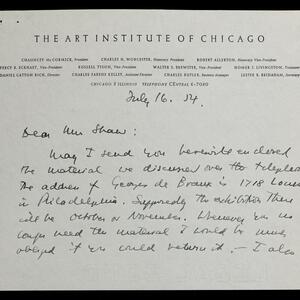 THE ART INSTITUTE OF CHICAGO
CHAUNCEY McCORMICK, President CHARLES H. WORCESTER, Honorary President ROBERT ALLERTON, Honorary Vice-President
PERCY B. ECKHART, Vice-President RUSSELL TYSON, Vice-President WALTER S. BREWSTER, Vice-President HOMER J. LIVINGSTON, Treasurer
DANIEL CATTON RICH, Director CHARLES FABENS KELLEY, Assistant Director CHARLES BUTLER, Business Manager LESTER B. BRIDAHAM, Secretary
CHICAGO 3 ILLINOIS TELEPHONE CENTRAL 6-7080
July 16. 54.
Dear Mrs Shaw:
May I send you herewith enclosed
the material we discussed over the telepho
The address of Georges de Braux is 1718 Locus
in Philadelphia. Supposedly the exhibition there
will be October or November. Whenever you no
longer need the material I would be much
obliged if you could return it. — I also